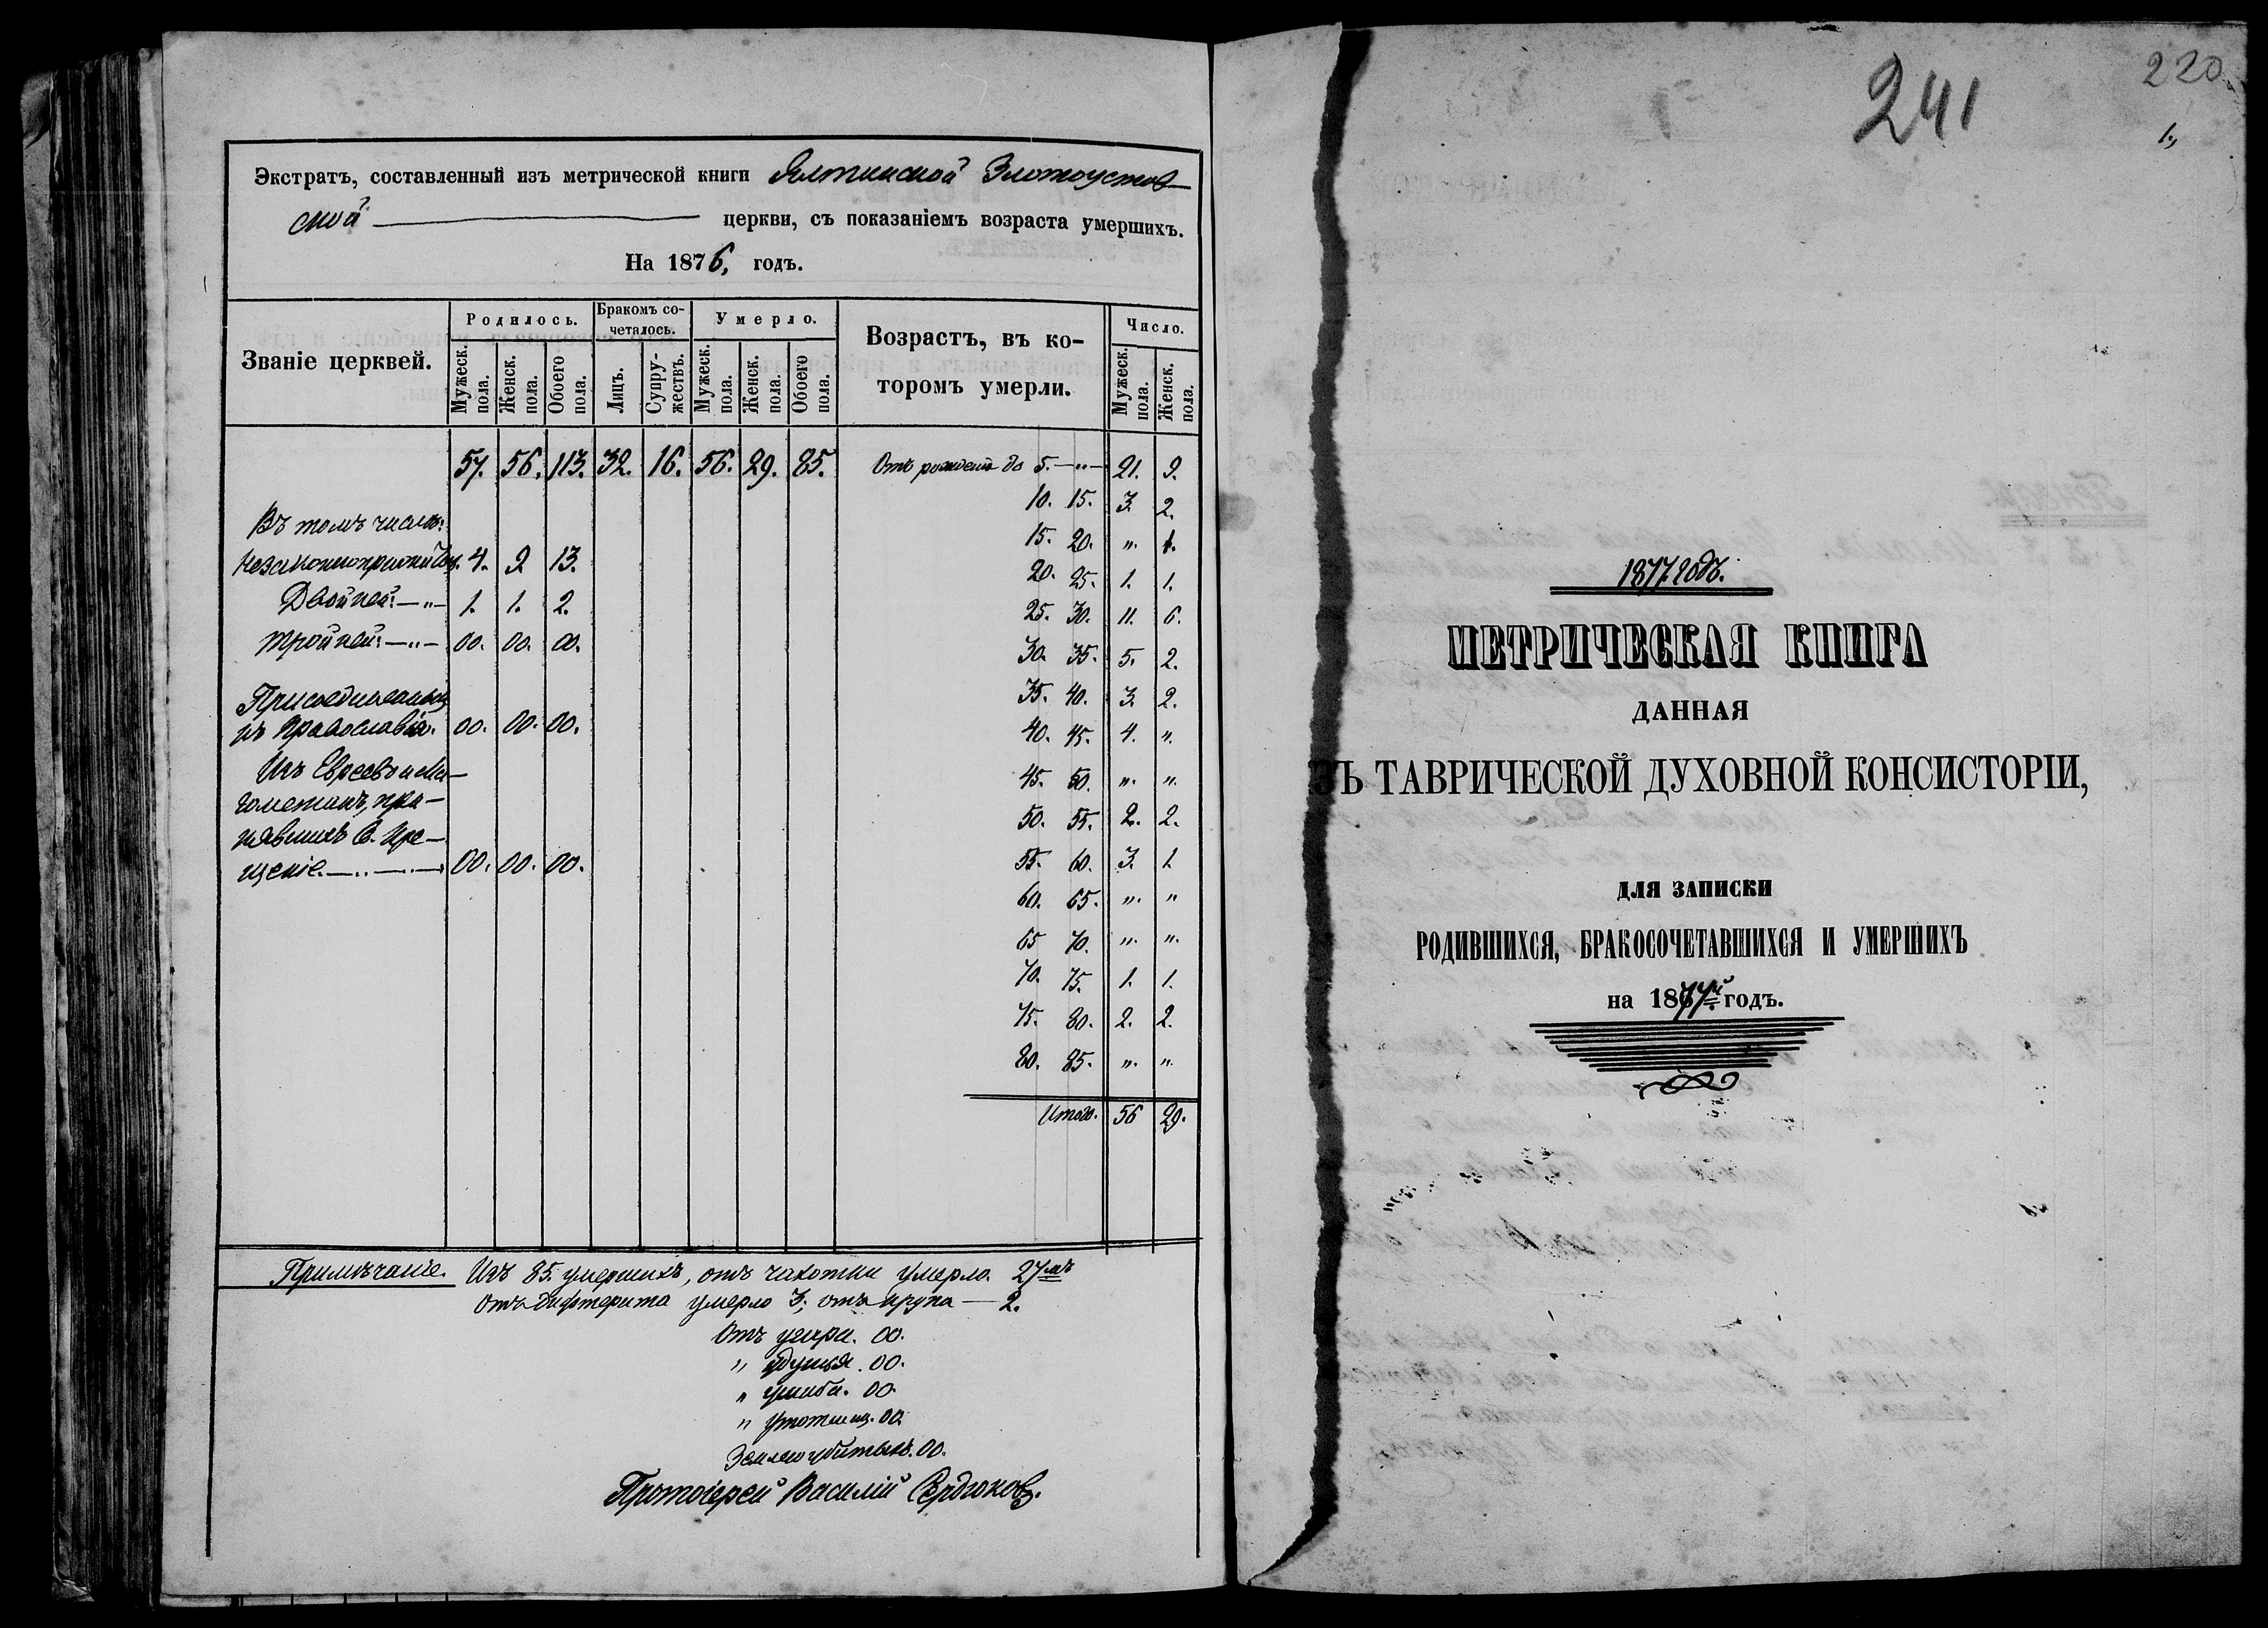 Экстратъ, составленный изъ метрической книги Ялтинской Златоустов-
ской церкви, съ показаніемъ возраста умершихъ.
На 1876, годъ.
Званіе церквей. Родилось. Бракомъ со-четалось. Умерло. Возрастъ, въ ко-торомъ умерли. Число.
Мужеск. пола. Женск. пола. Обоего пола. Лицъ. Супру-жествъ. Мужеск. пола. Женск. пола. Обоего пола. Мужеск. пола. Женск. пола.
57. 56. 113. 32. 16. 56. 29. 85. Отъ рожденія до 5. — " — 21. 9.
10. 15. 3. 2.
Въ томъ числѣ:
15. 20. ". 1.
4. 9. 13.
20. 25. 1. 1.
Двойней: — " — 1. 1. 2.
25. 30. 11. 6.
тройней: — " — 00. 00. 00.
30. 35. 5. 2.
Присоединенныхъ
35. 40. 3. 2.
къ Православію. 00. 00. 00.
40. 45. 4. ".
Изъ Евреевъ и Ма-
45. 50. ". ".
гометанъ, при-
50. 55. 2. 2.
нявшихъ С. Кре-
щеніе. 00. 00. 00.
55. 60. 3. 1
60. 65. ". "
65 70. ". ".
70. 75. 1. 1.
75. 80. 2. 2.
80. 85. ". ".
Итого. 56 29.
Примѣчаніе. Изъ 85 умершихъ, отъ чахотки умерло 27мъ
Отъ дифтерита умерло 3; отъ крупа — 2.
Отъ угара. 00.
" удушья. 00.
" ушиба. 00.
" 00.
Землею убитыхъ. 00.
Протоіерей Василій Сердюковъ.
241
220
1.,
1877 годъ.
МЕТРИЧЕСКАЯ КНИГА
ДАННАЯ
ЗЪ ТАВРИЧЕСКОЙ ДУХОВНОЙ КОНСИСТОРІИ,
ДЛЯ ЗАПИСКИ
РОДИВШИХСЯ, БРАКОСОЧЕТАВШИХСЯ И УМЕРШИХЪ
на 1877й годъ.